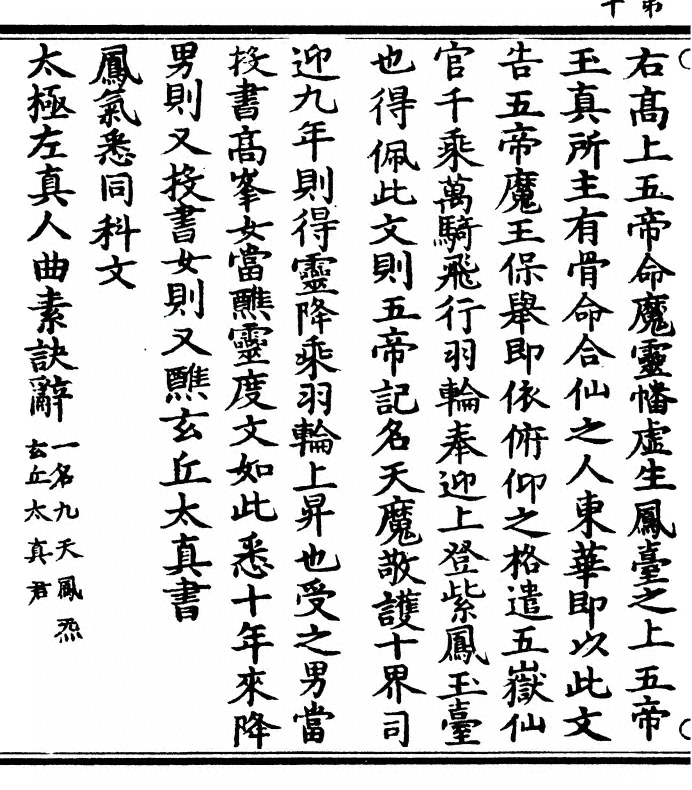 右高上五帝命魔靈幡虛生鳳臺之上五帝
玉真所主有骨命合仙之人東華即以此文
告五帝魔王保舉即依俯仰之格遣五嶽仙
官千乘萬騎飛行羽輪奉迎上登紫鳳玉臺
也得佩此文則五帝記名天魔敬護十界司
迎九年則得靈降乘羽輪上昇也受之男當
投書高峯女當醮靈度文如此悉十年來降
男則又投書女則又醮玄丘太真書
鳳氣悉同科文
太極左真人曲素訣辭
一名九天鳳炁
玄丘太真君